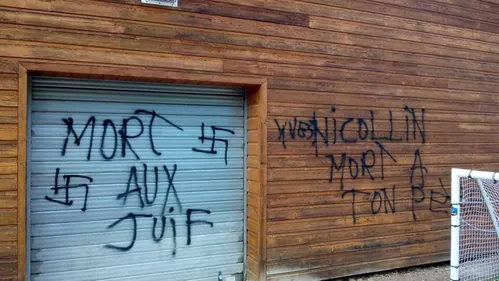 MORT
AUX
JUIF
YVES NICOLLIN
MORT A
TON